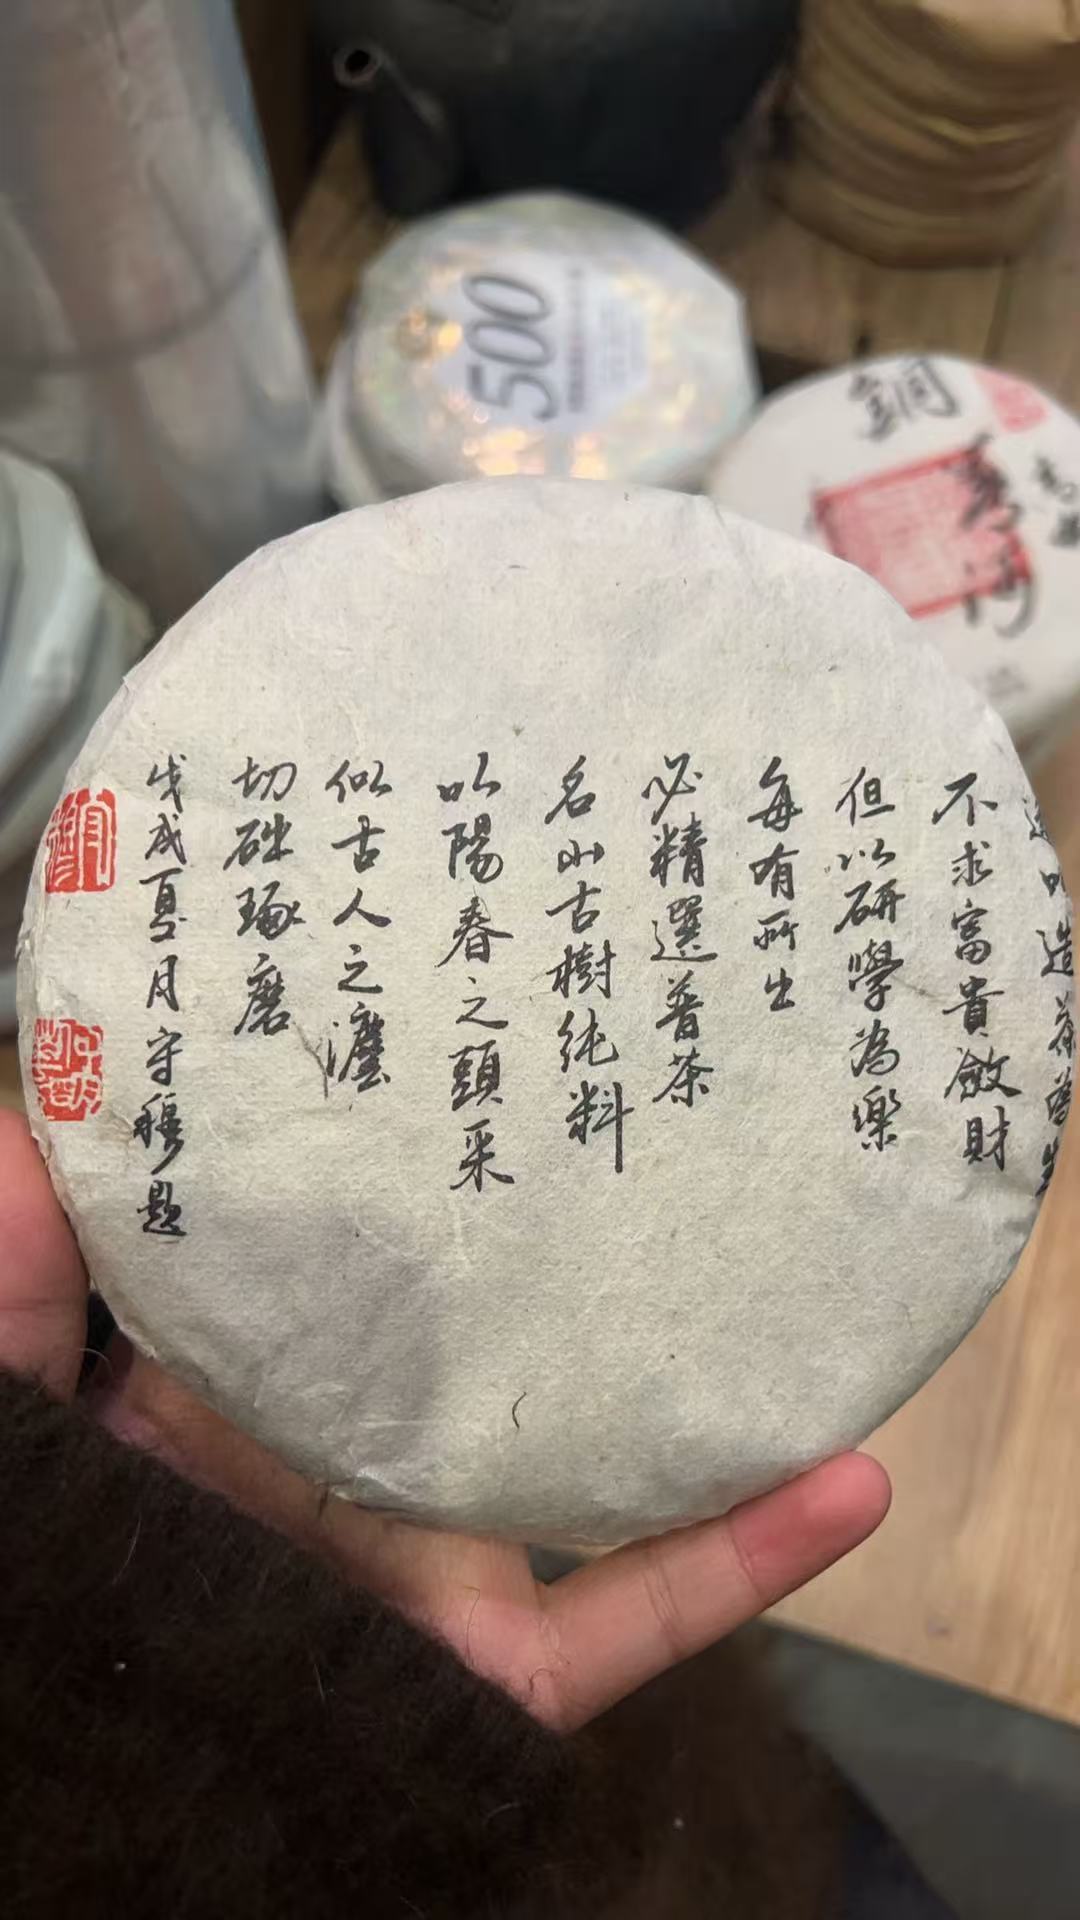 造茶為生
不求富貴斂財
但以研學為樂
每有所生
必精選普茶
名山古樹純料
以陽春之頭采
似古人之瀍
切磋琢磨
戊戌夏月守穆題
守穆
500
銅